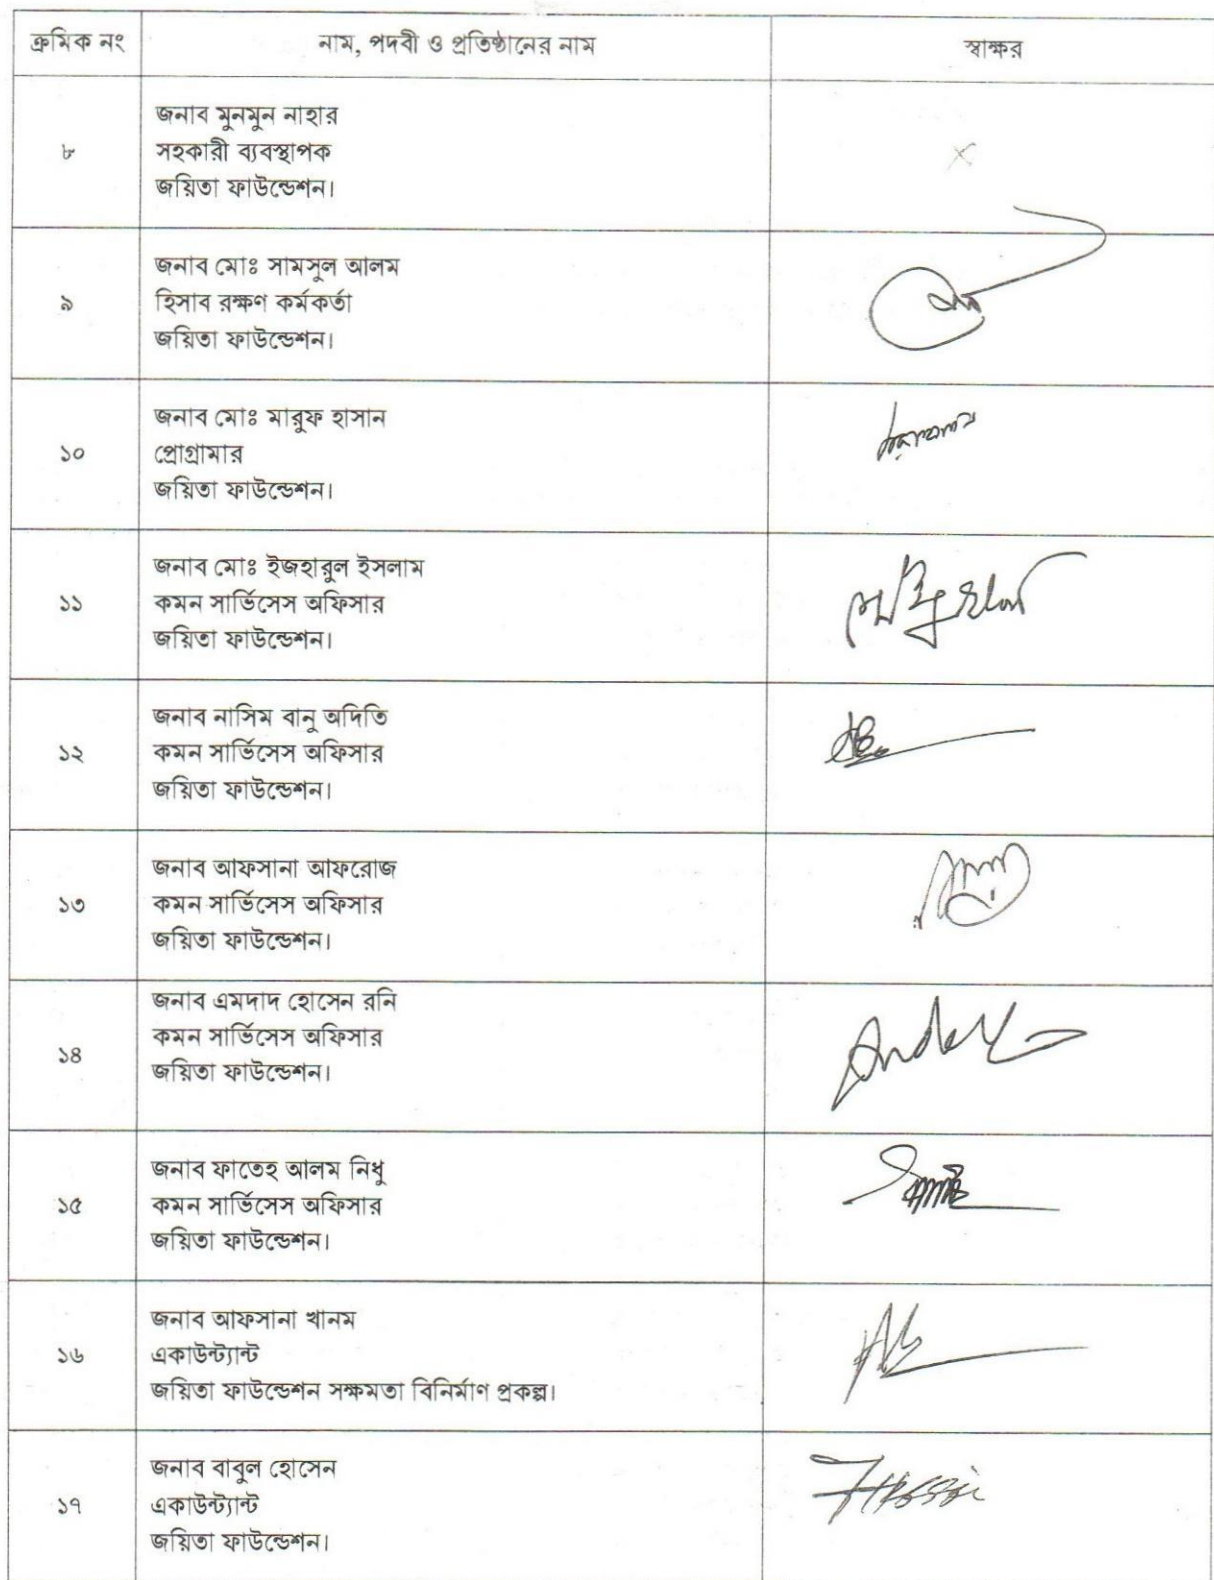 ক্রমিক নং নাম, পদবী ও প্রতিষ্ঠানের নাম স্বাক্ষর
জনাব মুনমুন নাহার
৮ সহকারী ব্যবস্থাপক
জয়িতা ফাউন্ডেশন।
জনাব মোঃ সামসুল আলম
৯ হিসাব রক্ষণ কর্মকর্তা
জয়িতা ফাউন্ডেশন।
জনাব মোঃ মারুফ হাসান
১০ প্রোগ্রামার
জয়িতা ফাউন্ডেশন।
জনাব মোঃ ইজহারুল ইসলাম
১১ কমন সার্ভিসেস অফিসার
জয়িতা ফাউন্ডেশন।
জনাব নাসিম বানু অদিতি
১২ কমন সার্ভিসেস অফিসার
জয়িতা ফাউন্ডেশন।
জনাব আফসানা আফরোজ
১৩ কমন সার্ভিসেস অফিসার
জয়িতা ফাউন্ডেশন।
জনাব এমদাদ হোসেন রনি
১৪ কমন সার্ভিসেস অফিসার
জয়িতা ফাউন্ডেশন।
জনাব ফাতেহ আলম নিধু
১৫ কমন সার্ভিসেস অফিসার
জয়িতা ফাউন্ডেশন।
জনাব আফসানা খানম
১৬ একাউন্ট্যান্ট
জয়িতা ফাউন্ডেশন সক্ষমতা বিনির্মাণ প্রকল্প।
জনাব বাবুল হোসেন
১৭ একাউন্ট্যান্ট
জয়িতা ফাউন্ডেশন।